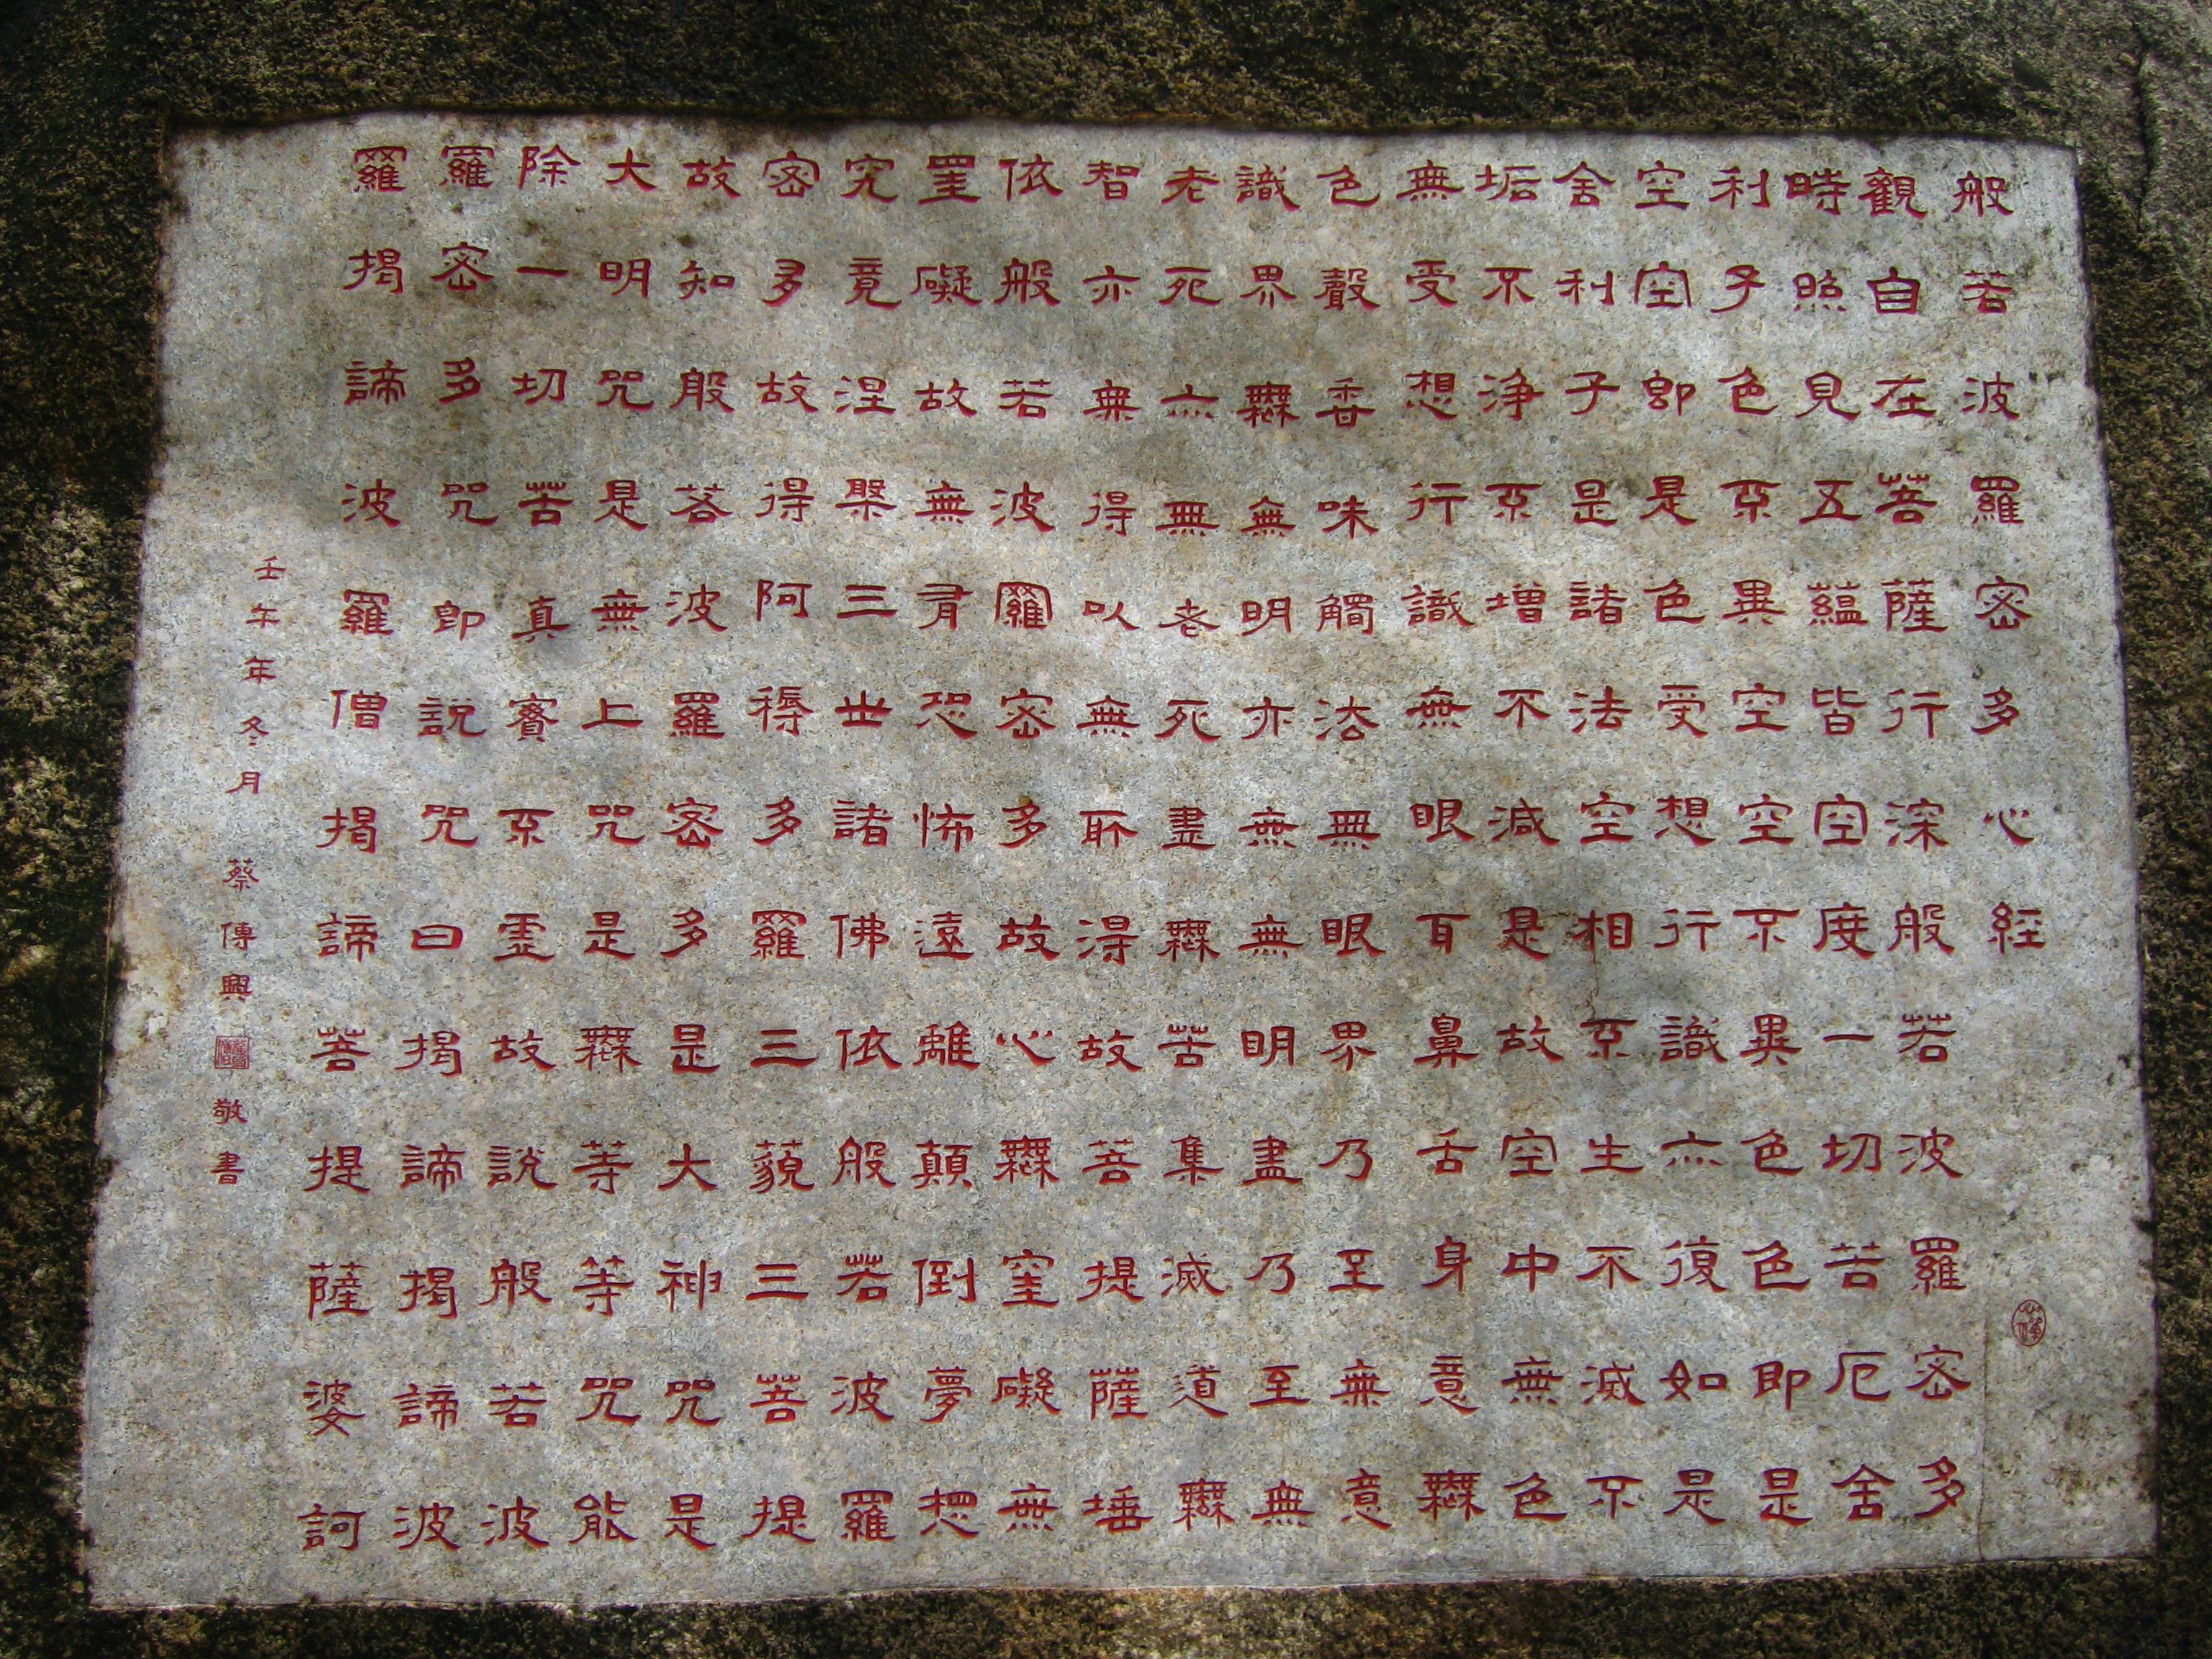 般若波羅密多心経
觀自在菩薩行深般若波羅密多
時照見五蘊皆空度一切苦厄舍
利子色不異空空不異色色即是
空空即是色受想行識亦復如是
舍利子是諸法空相不生不滅不
垢不淨不增不減是故空中無色
無受想行識無眼耳鼻舌身意無
色聲香味觸法無眼界乃至無意
識界無無明亦無無明盡乃至無
老死亦無老死盡無苦集滅道無
智亦無得以無所得故菩提薩埵
依般若波羅密多故心無罣礙無
罣礙故無有恐怖遠離顛倒夢想
究竟涅槃三世諸佛依般若波羅
密多故得阿耨多羅三藐三菩提
故知般若波羅密多是大神咒是
大明咒是無上咒是無等等咒能
除一切苦真實不虛故說般若波
羅密多咒即說咒曰揭諦揭諦波
羅揭諦波羅僧揭諦菩提薩婆訶
壬午年冬月 蔡傳興 敬書